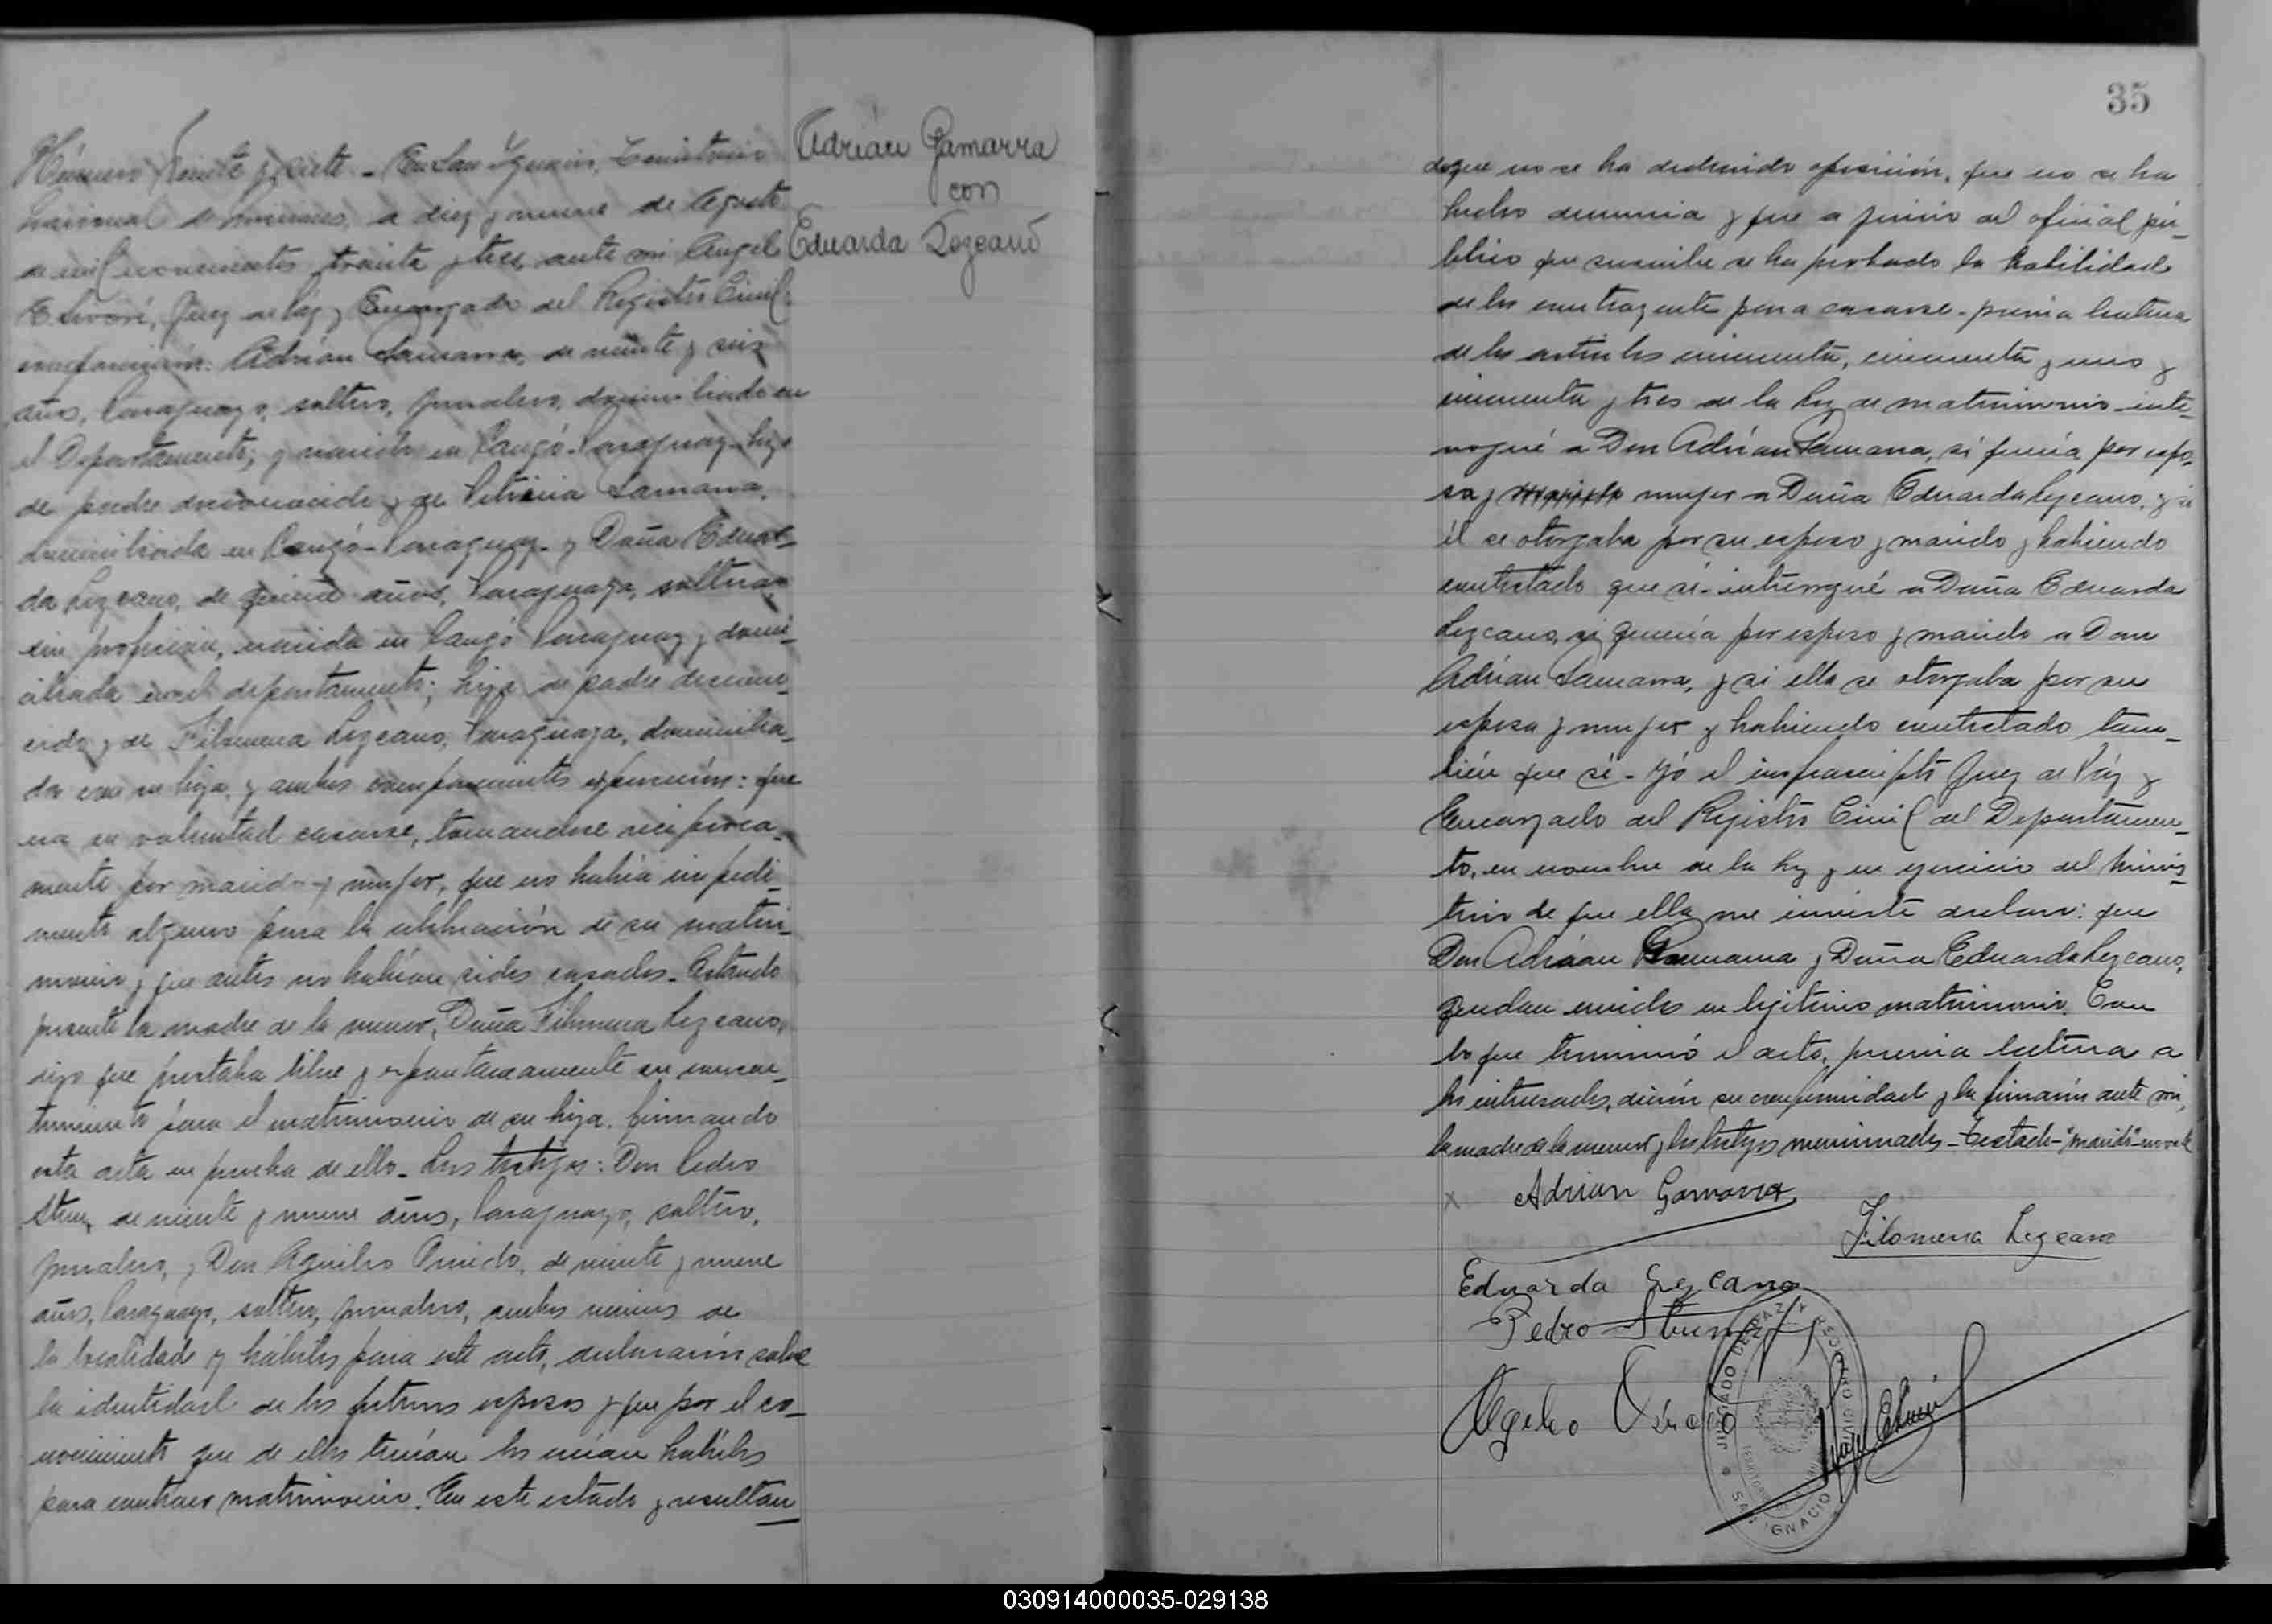 Número veinte y siete - En San Ignacio, Territorio
Nacional de Misiones, a diez y nueve de Agosto
de mil novecientos treinta y tres, ante mi Angel
Juez de Paz y Encargado del Registro Civil,
comparecieron: Adrián Gamarra, de veinte y seis
años, Paraguayo, soltero, jornalero, domiciliado en
el Departamento; y nacido en Cangó - Paraguay - hijo
de padre desconocido y de Gamarra,
domiciliada en Cangó - Paraguay - y Doña Eduar-
da Lezcano, de quince años, Paraguaya, soltera,
sin profesión, nacida en Cangó Paraguay y domi-
ciliada en el departamento; hija de padre descono-
cido y de Filomena Lezcano, Paraguaya, domicilia-
da con su hija, y ambos comparecientes expusieron: que
era su voluntad casarse, tomandose reciproca-
mente por marido y mujer, que no había impedi-
mento alguno para la celebración de su matri-
monio y que antes no habían sidos casados - Estando
presente la madre de la menor, Doña Filomena Lezcano,
dijo que prestaba libre y espontaneamente su consen-
timiento para el matrimonio de su hija, firmando
esta acta en prueba de ello - Los testigos: Don Pedro
de veinte y nueve años, Paraguayo, soltero,
jornalero, y Don Oviedo, de veinte y nueve
años, Paraguayo, soltero, jornalero, ambos vecinos de
la localidad y hábiles para este acto, declararon sobre
la identidad de los futuros esposos y que por el co-
nocimiento que de ellos tenían los creían hábiles
para contraer matrimonio. En este estado y resultan
Adrián Gamarra
con
Eduarda Lezcano
35
do que no se ha deducido oposición, que no se ha
hecho denuncia y que a juicio del oficial pú-
blico que suscribe se ha probado la habilidad
de los contrayentes para casarse - previa lectura
de los artículos cincuenta, cincuenta y uno y
cincuenta y tres de la Ley de matrimonio - inte-
rrogué a Don Adrián Gamarra, si quería por espo-
sa y marido mujer a Doña Eduarda Lezcano, y si
él se otorgaba por su esposo y marido y habiendo
contestado que sí - interrogué a Doña Eduarda
Lezcano, si quería por esposo y marido a Don
Adrián Gamarra, y si ella se otorgaba por su
esposa y mujer y habiendo contestado tam-
bién que sí - Yó el infrascripto Juez de Paz y
Encargado del Registro Civil del Departamen-
to, en nombre de la ley y en ejercicio del minis-
terio de que ella me inviste declaro: que
Don Adrián Gamarra y Doña Eduarda Lezcano,
quedan unidos en legitimo matrimonio. Con
lo que terminó el acto, previa lectura a
los interesados, dieron su conformidad y la firmaron ante mi,
la madre de la menor y los testigos mencionados - Testado - "marido" - no vale
x Adrian Gamarra
Filomena Lezcano
Eduarda Lezcano
Pedro
JUZGADO DE PAZ Y REGISTRO CIVIL
SAN IGNACIO
030914000035-029138